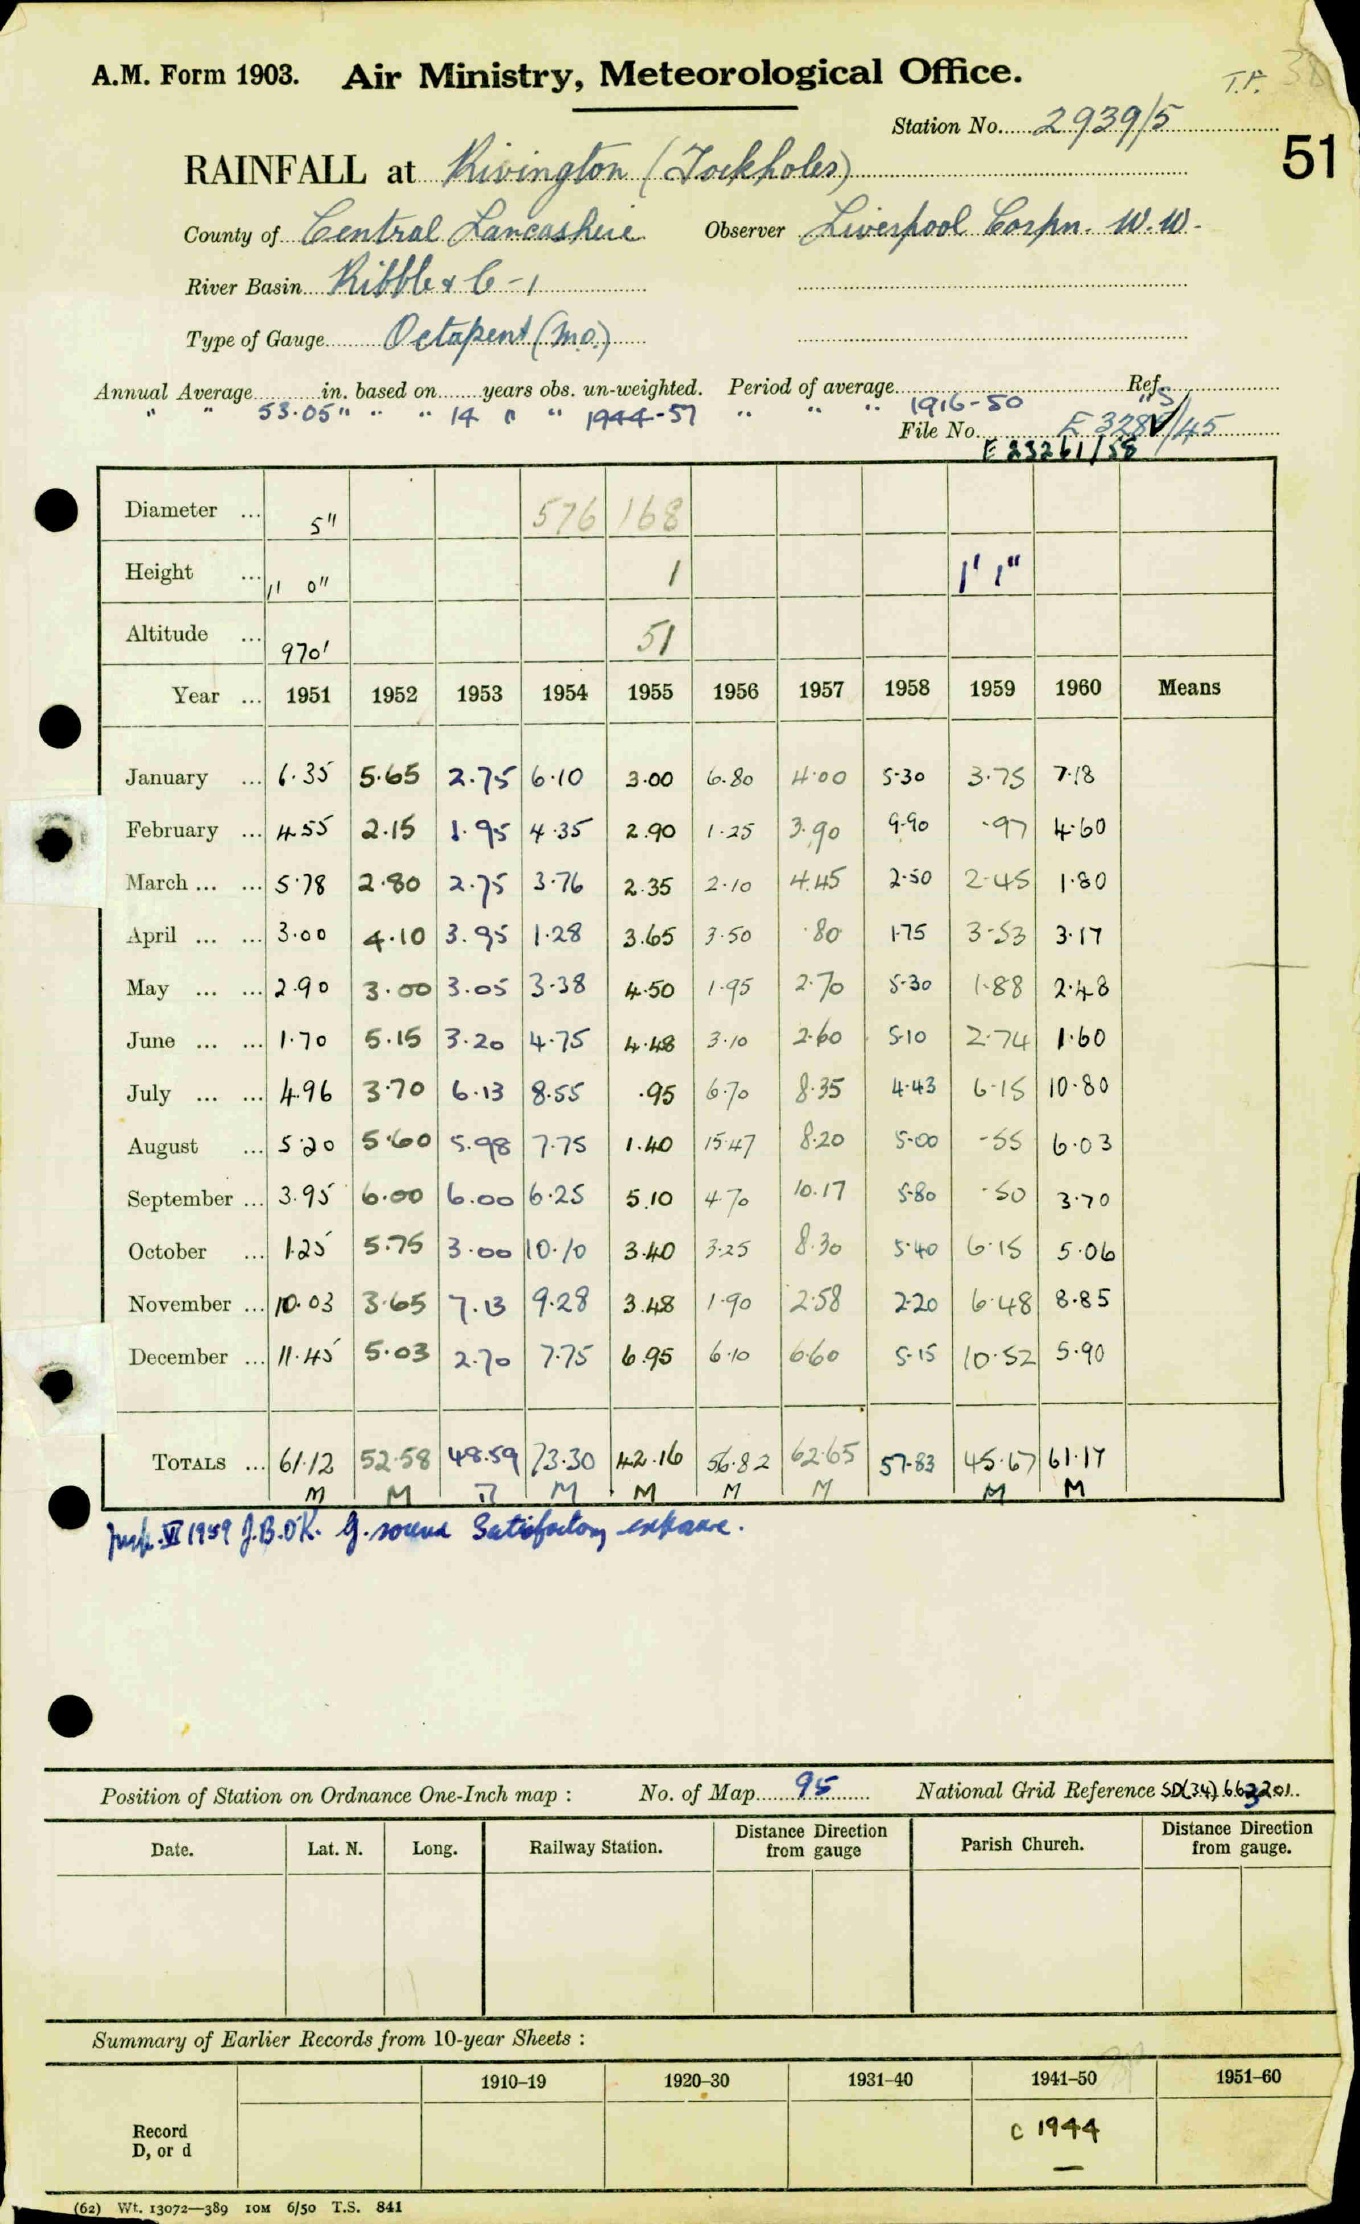 T.F. 38
A.M. Form 1903. Air Ministry, Meteorological Office.
Station No. 2939/5
51
RAINFALL at Rivington (Tockholes)
County of Central Lancashire Observer Liverpool Corpn. W.W.
River Basin Ribble & C-1
Type of Gauge Octapent (Mo.)
Annual Average in. based on years obs. un-weighted. Period of average Ref.
" " 53.05" " " 14 " " 1944-57 " " " 1916-50 "
File No. E 328 /45
E 23261/58
Diameter ... 5" 576 168
Height ... 1' 0" 1 1' 1"
Altitude ... 970' 51
Year ... 1951 1952 1953 1954 1955 1956 1957 1958 1959 1960 Means
January ... 6.35 5.65 2.75 6.10 3.00 6.80 4.00 5.30 3.75 7.18
February ... 4.55 2.15 1.95 4.35 2.90 1.25 3.90 9.90 .97 4.60
March ... ... 5.78 2.80 2.75 3.76 2.35 2.10 4.45 2.50 2.45 1.80
April ... ... 3.00 4.10 3.95 1.28 3.65 3.50 .80 1.75 3.53 3.17
May ... ... 2.90 3.00 3.05 3.38 4.50 1.95 2.70 5.30 1.88 2.48
June ... ... 1.70 5.15 3.20 4.75 4.48 3.10 2.60 5.10 2.74 1.60
July ... ... 4.96 3.70 6.13 8.55 .95 6.70 8.35 4.43 6.15 10.80
August ... 5.20 5.60 5.98 7.75 1.40 15.47 8.20 5.00 .55 6.03
September ... 3.95 6.00 6.00 6.25 5.10 4.70 10.17 5.80 .50 3.70
October ... 1.25 5.75 3.00 10.10 3.40 3.25 8.30 5.40 6.15 5.06
November ... 10.03 3.65 7.13 9.28 3.48 1.90 2.58 2.20 6.48 8.85
December ... 11.45 5.03 2.70 7.75 6.95 6.10 6.60 5.15 10.52 5.90
TOTALS ... 61.12 52.58 48.59 73.30 42.16 56.82 62.65 57.83 45.67 61.17
M M M M M M M M
Insp. VI 1959 J.B.O'K. G. sound Satisfactory exposure.
Position of Station on Ordnance One-Inch map : No. of Map 95 National Grid Reference SD(34) 663201
Date. Lat. N. Long. Railway Station. Distance Direction from gauge Parish Church. Distance Direction from gauge.
Summary of Earlier Records from 10-year Sheets :
1910–19 1920–30 1931–40 1941–50 1951–60
Record
D, or d
C 1944
(62) Wt. 13072—389 10M 6/50 T.S. 841